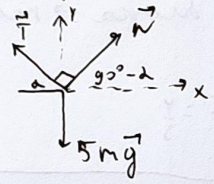 Y
T N
α 90°-α
X
5mg